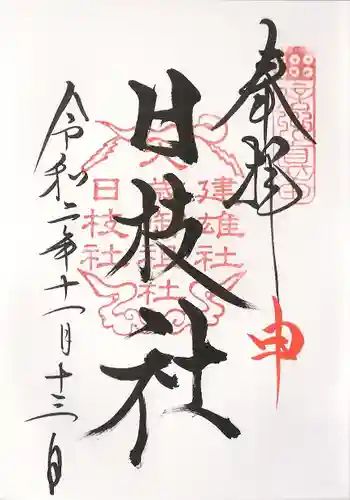 奉拝
申
建雄社
日枝社
日枝社
令和二年十一月十三日